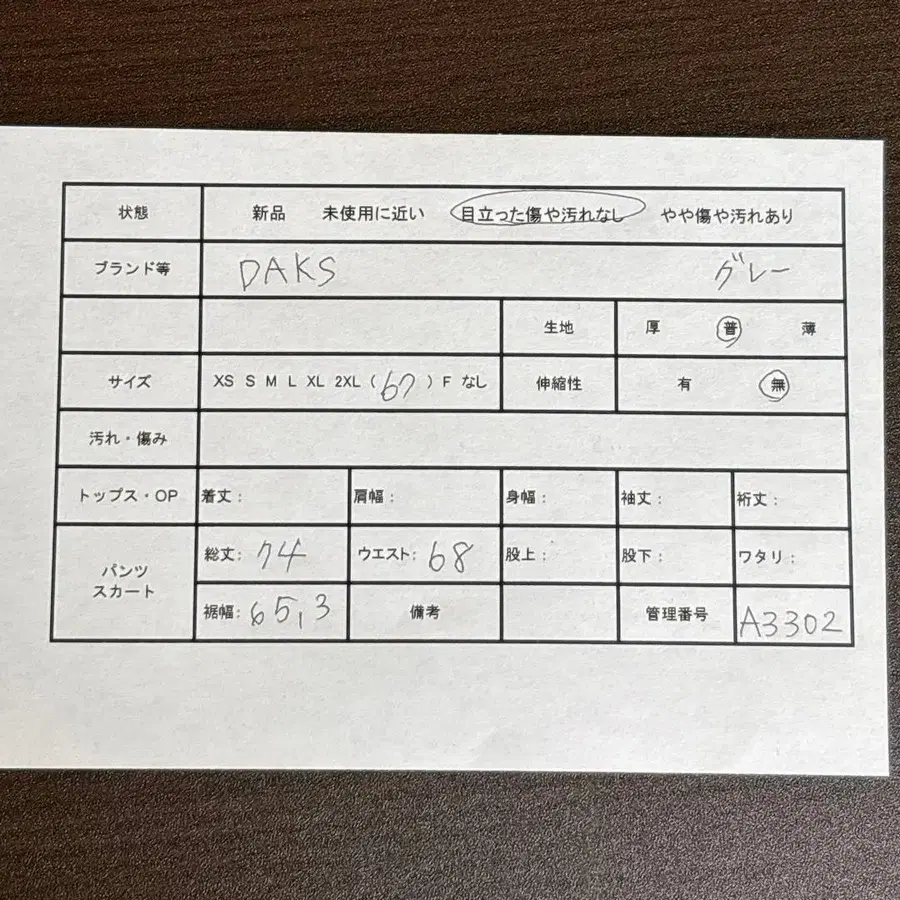 状態 新品 未使用に近い 目立った傷や汚れなし やや傷や汚れあり
ブランド等 DAKS グレー
生地 厚 普 薄
サイズ XS S M L XL 2XL ( 67 ) F なし 伸縮性 有 無
汚れ・傷み
トップス・OP 着丈: 肩幅: 身幅: 袖丈: 裄丈:
パンツ スカート
総丈: 74 ウエスト: 68 股上: 股下: ワタリ:
裾幅: 65,3 備考 管理番号 A3302